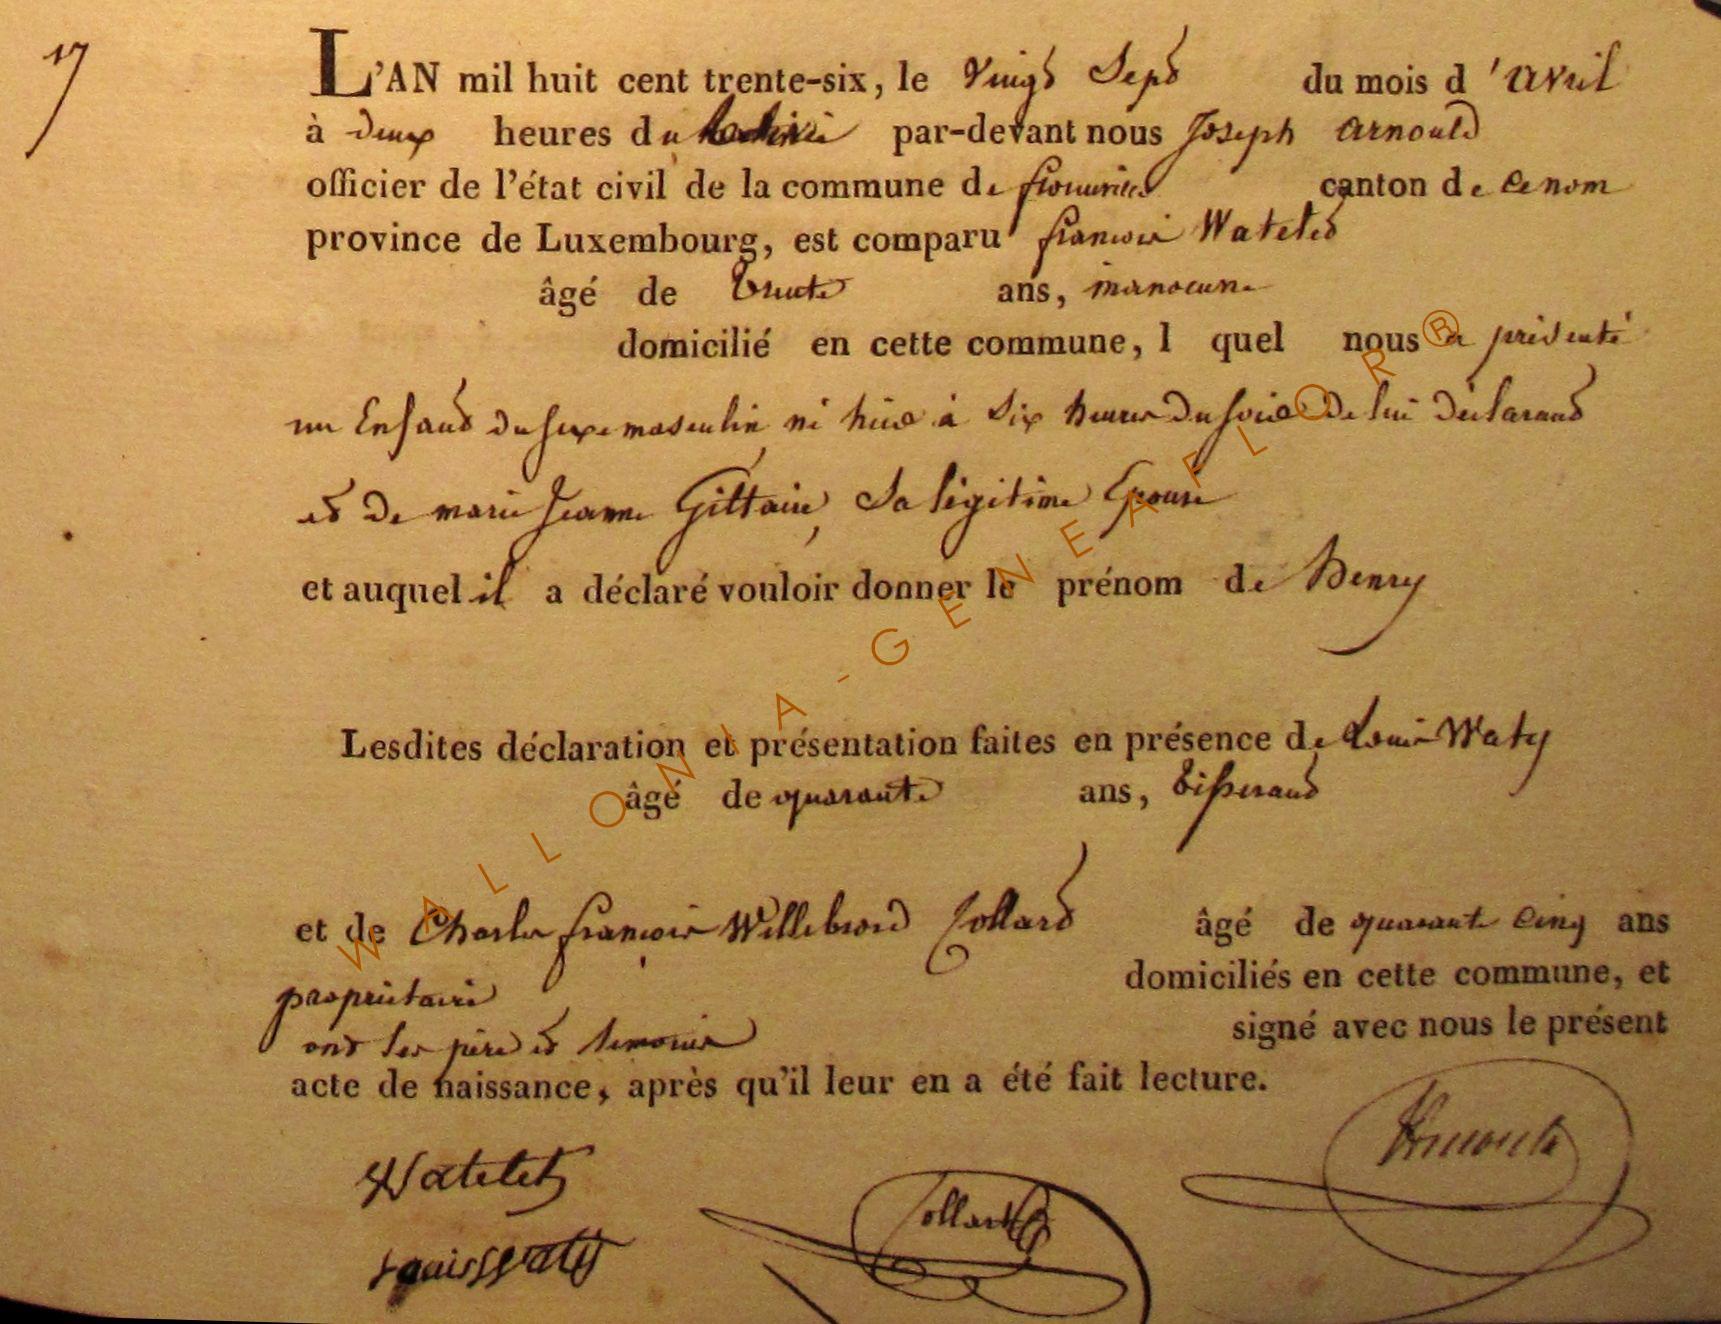 17
L'AN mil huit cent trente-six, le vingt Sept du mois d'avril
à deux heures du par-devant nous Joseph arnould
officier de l'état civil de la commune de canton de ce nom
province de Luxembourg, est comparu francois Watelet
âgé de trente ans, manoeuvre
domicilié en cette commune, l quel nous a présenté
un Enfant du sexe masculin, né hier à Six heures du soir de lui déclarant
et de marie Jeanne Gillain, Sa légitime Epouse
et auquel il a déclaré vouloir donner le prénom de Henry
Lesdites déclaration et présentation faites en présence de Louis Waty
âgé de quarante ans, tisserand
et de Charles francois Willebrord Collard âgé de quarante cinq ans
propriétaire domiciliés en cette commune, et
ont les père et témoins signé avec nous le présent
acte de naissance, après qu'il leur en a été fait lecture.
Watelet
Collard
Arnould
Louis Waty
WALLONIA-GENEAFLOR®